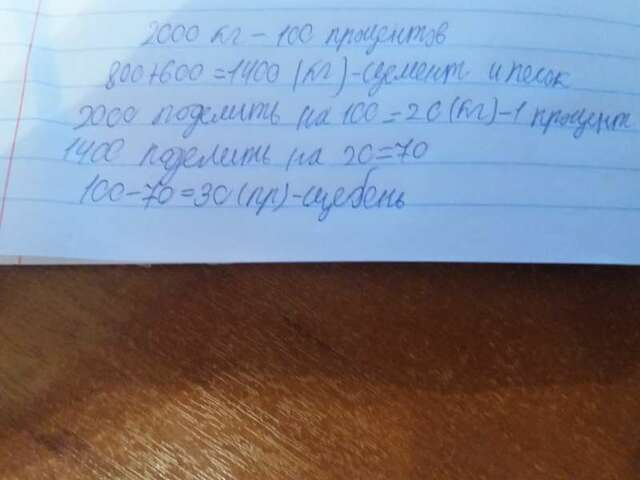 2000 кг - 100 процентов
800+600=1400 (кг)-цемент и песок
2000 поделить на 100=20(кг)-1 процент
1400 поделить на 20=70
100-70=30(пр)-щебень